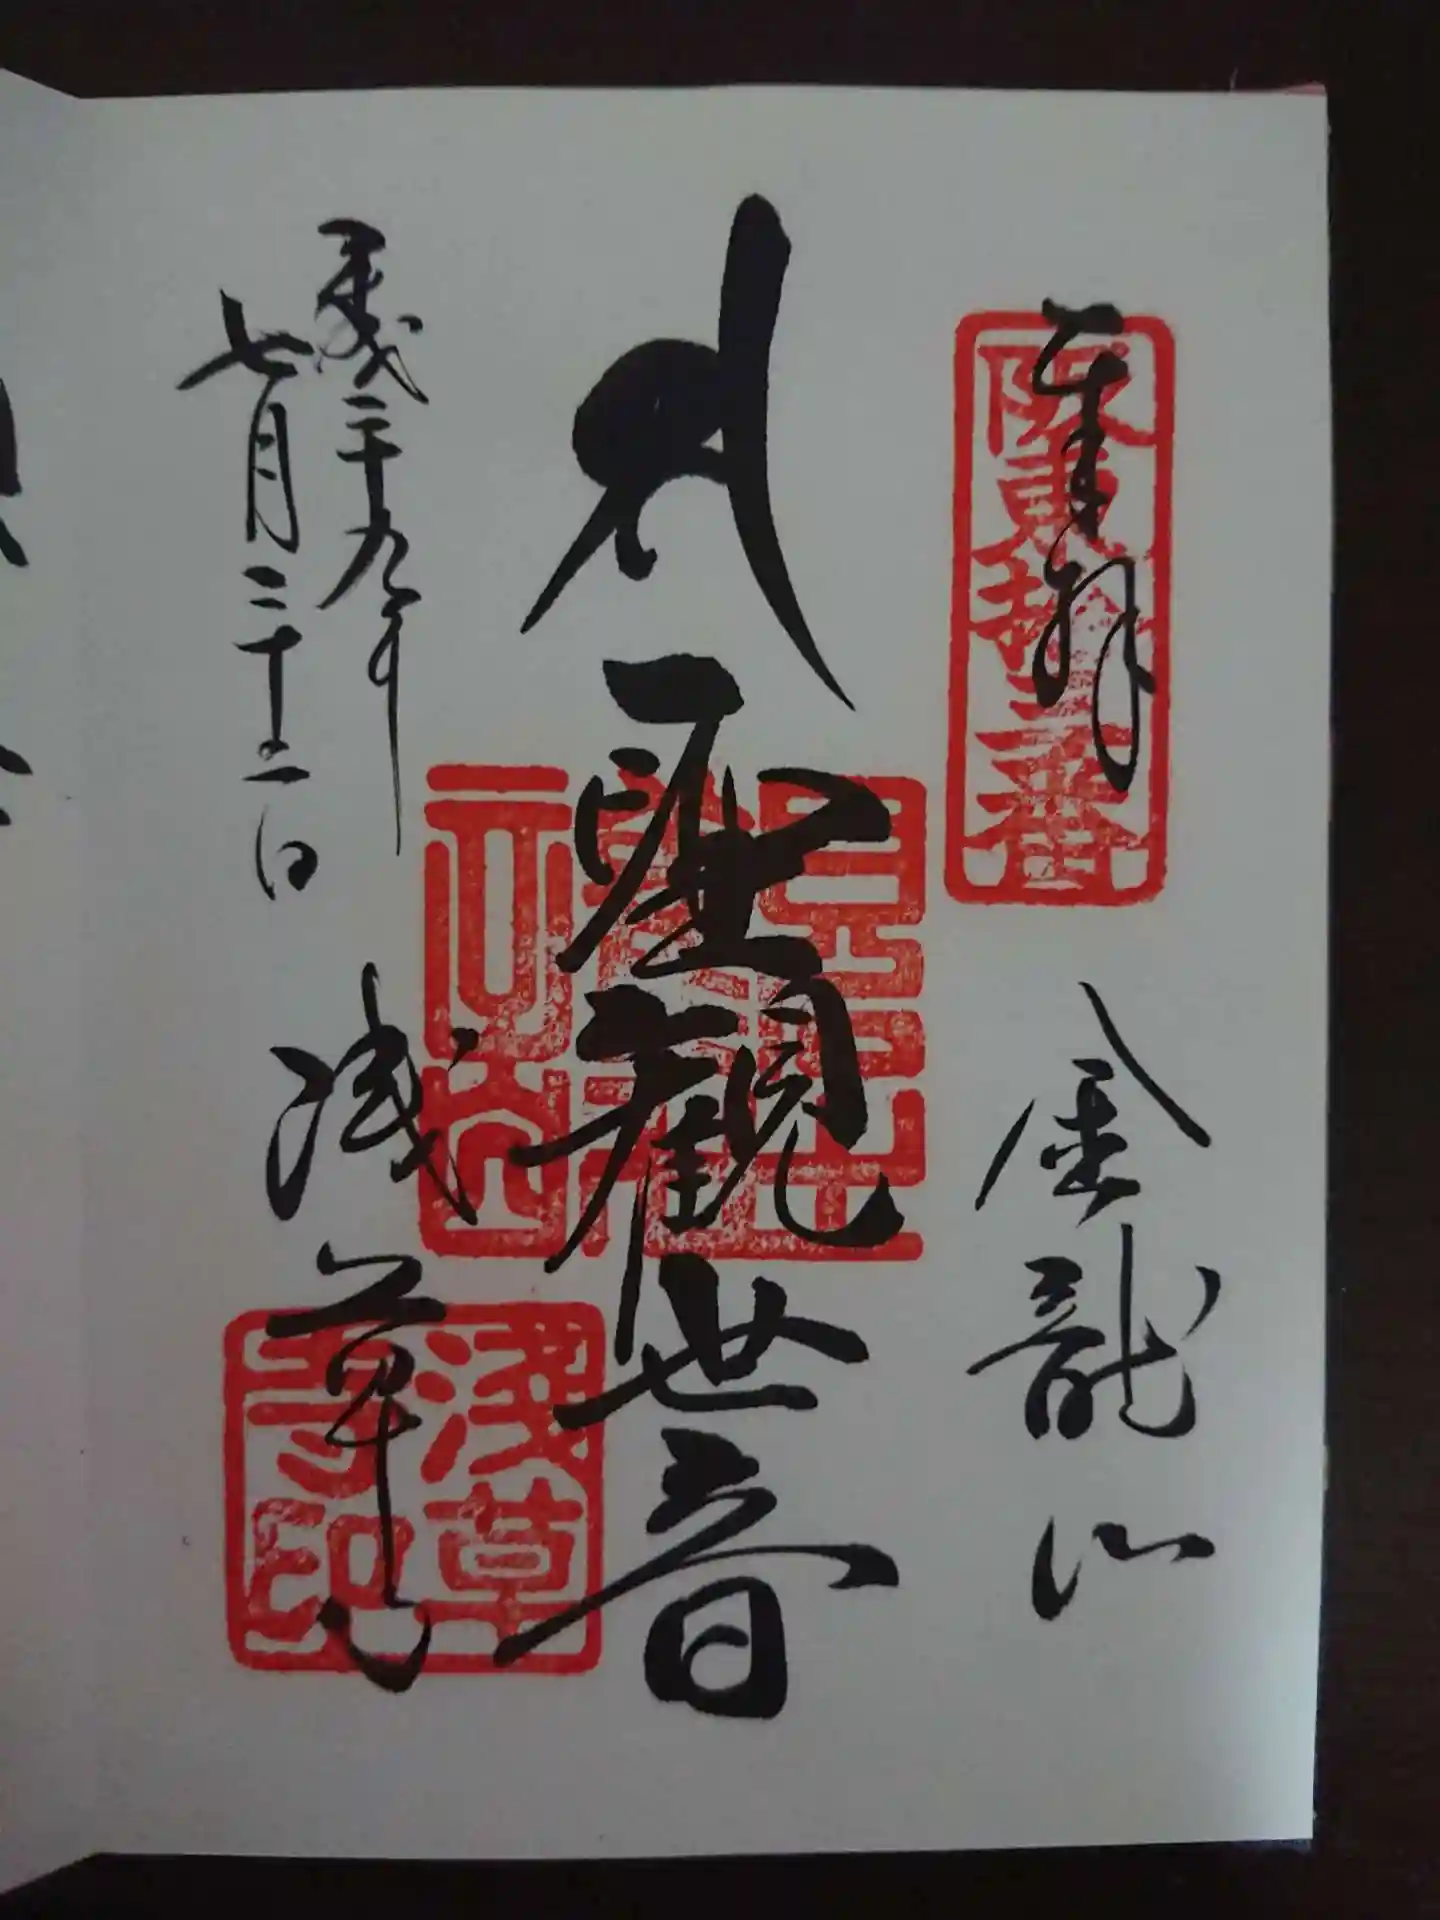 奉拝
阪東拾三番
金龍山
聖観世音
平成二十九年
七月二十二日
浅草寺
淺草
寺印